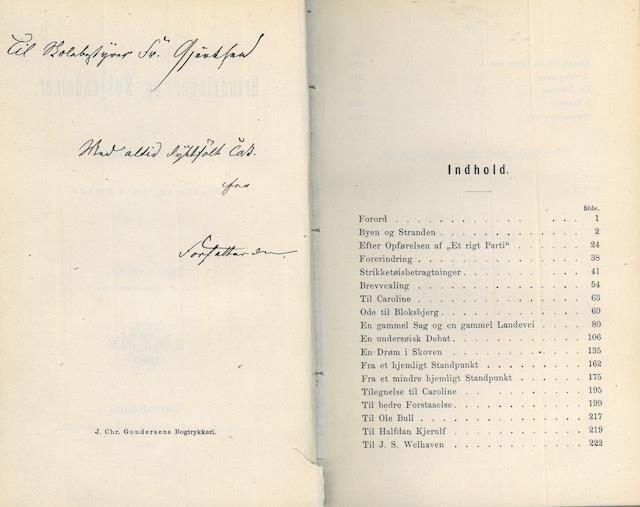 Til Skolebestyrer Fr. Gjertsen
Med altid dybtfølt Tak.
fra
Forfatteren.
J. Chr. Gundersens Bogtrykkeri.
Indhold.
Side.
Forord 1
Byen og Stranden 2
Efter Opførelsen af „Et rigt Parti“ 24
Forerindring 38
Strikketøisbetragtninger 41
Brevvexling 54
Til Caroline 63
Ode til Bloksbjerg 69
En gammel Sag og en gammel Landevei 80
En undersøisk Debat 106
En Drøm i Skoven 135
Fra et hjemligt Standpunkt 162
Fra et mindre hjemligt Standpunkt 175
Tilegnelse til Caroline 195
Til bedre Forstaaelse 199
Til Ole Bull 217
Til Halfdan Kjerulf 219
Til J. S. Welhaven 222